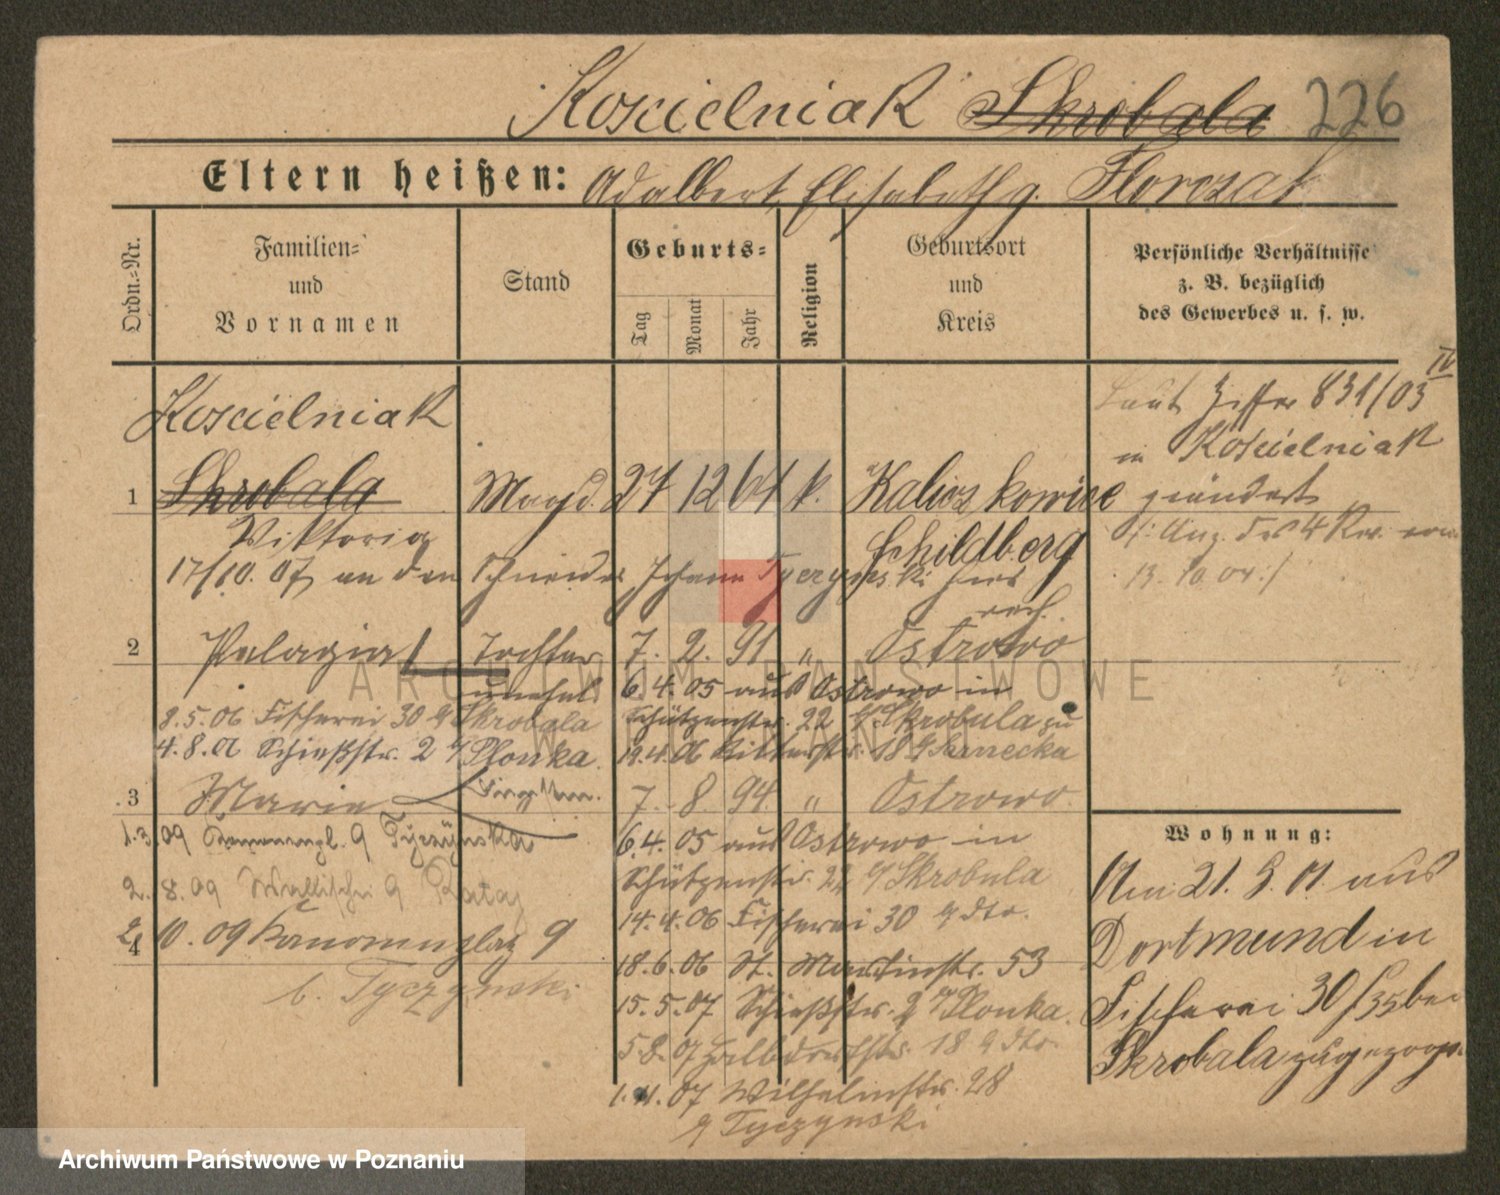 Koscielniak Skrobala 226
Eltern heißen: Adalbert, Elisabeth g. Florczak
Ordn.-Nr.
Familien-
und
Vornamen
Stand
Geburts-
Tag
Monat
Jahr
Religion
Geburtsort
und
Kreis
Persönliche Verhältnisse
z. B. bezüglich
des Gewerbes u. s. w.
Koscielniak
1 Skrobala Magd. 27 12 64 k. Kaliszkowice
Viktoria Schildberg
17/10. 07 an den Schneider Johann Tyczynski hier
Laut Ziffer 831/03 IV
in Koscielniak
geändert
13. 10. 04
2 Pelagia Tochter 7. 2. 91 " Ostrowo
unehel. 6. 4. 05 aus Ostrowo in
8. 5. 06 Fischerei 30 Skrobala Schützenstr. 22 Skrobala zu
4. 8. 06 Schießstr. 2 Plonka. 19. 4. 06 Ritterstr. 18 Sarnecka
3 Marie 7. 8. 94 " Ostrowo.
1. 3. 09 9 Tyczynska 6. 4. 05 aus Ostrowo in
2. 8. 09 Wallischei 9 Rataj Schützenstr. 22 Skrobala
14. 4. 06 Fischerei 30 dto.
2. 10. 09 Kanonenplatz 9
4
b. Tyczynski
18. 6. 06 St. Martinstr. 53
15. 5. 07 Schießstr. 2 Plonka.
5. 8. 07 Halbdorfstr. 18 dto.
1. 11. 07 Wilhelmstr. 28
Tyczynski
Wohnung:
Am 21. 3. 01 aus
Dortmund in
Fischerei 30/35 bei
Skrobala zugezogen.
ARCHIWUM PAŃSTWOWE
W POZNANIU
Archiwum Państwowe w Poznaniu